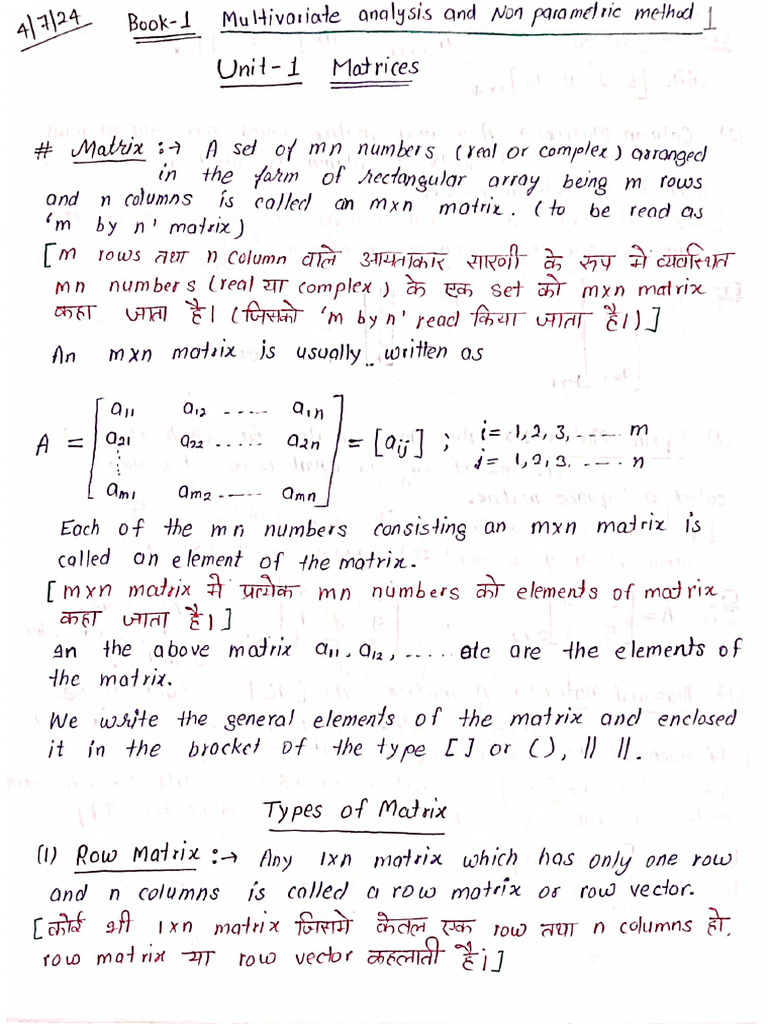 4/7/24 Book-1 Multivariate analysis and Non parametric method 1
Unit-1 Matrices
# Matrix :→ A set of mn numbers (real or complex) arranged
in the farm of rectangular array being m rows
and n columns is called an m×n matrix. (to be read as
'm by n' matrix)
[m rows तथा n column वाले आयताकार सारणी के रूप मे व्यवस्थित
mn numbers (real या complex) के एक set को m×n matrix
कहा जाता है। (जिसको 'm by n' read किया जाता है।)]
An m×n matrix is usually written as
A = [a11 a12 ----- a1n
a21 a22 ----- a2n
⋮
am1 am2 ----- amn] = [aij] ; i= 1,2,3, ---- m
j= 1,2,3. ---- n
Each of the mn numbers consisting an m×n matrix is
called an element of the matrix.
[m×n matrix मे प्रत्येक mn numbers को elements of matrix
कहा जाता है।]
In the above matrix a11, a12, ..... etc are the elements of
the matrix.
We write the general elements of the matrix and enclosed
it in the bracket of the type [] or (), || ||.
Types of Matrix
(1) Row Matrix :→ Any 1×n matrix which has only one row
and n columns is called a row matrix or row vector.
[कोई भी 1×n matrix जिसमे केवल एक row तथा n columns हो,
row matrix या row vector कहलाती है।]